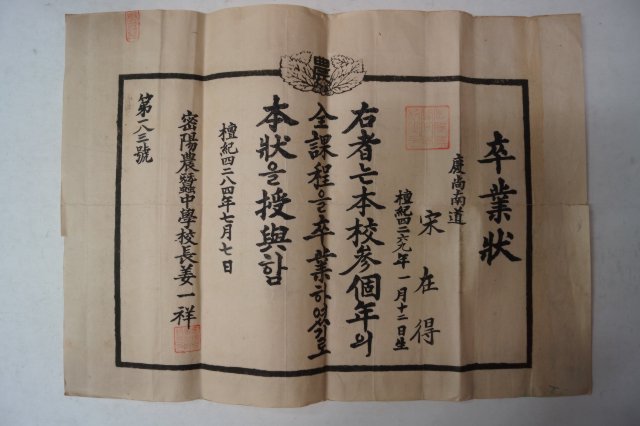 農
卒業狀
慶尙南道
宋在得
檀紀四二六九年一月十二日生
右者는本校參個年의
全課程을卒業하였기로
本狀을授與함
檀紀四二八四年七月七日
密陽農蠶中學校長姜一祥
第一八三號